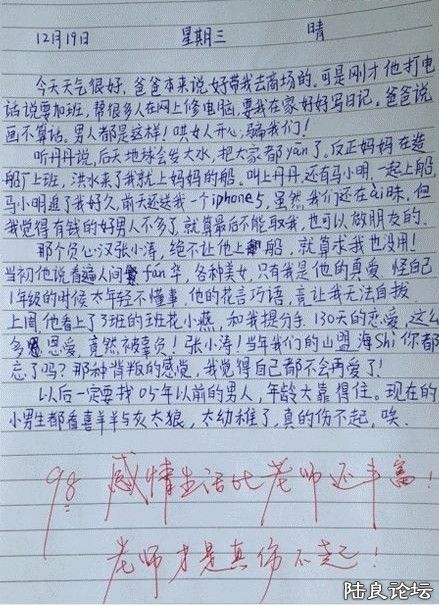 12月19日 星期三 晴
今天天气很好，爸爸本来说好带我去商场的。可是刚才他打电
话说要加班，帮很多人在网上修电脑，要我在家好好写日记。爸爸说
画不算话。男人都是这样！哄女人开心，骗我们！
听丹丹说，后天地球会发大水，把大家都yān了。反正妈妈在造
船厂上班，洪水来了我就上妈妈的船。叫上丹丹，还有马小明，一起上船，
马小明追了我好久，前天还送我一个iphone5，虽然我们还在ài昧，但
我觉得有钱的好男人不多了，就算最后不能取我，也可以做朋友的。
那个负心汉张小涛，绝不让他上船，就算求我也没用！
当初他说看遍人间fán华，各种美女，只有我是他的真爱，怪自己
1年级的时候太年轻不懂事，他的花言巧语，竟让我无法自拔，
上周，他看上了3班的班花小燕，和我提分手，130天的恋爱，这么
多恩爱，竟然被辜负！张小涛！当年我们的山盟海Shì你都
忘了吗？那种背叛的感觉，我觉得自己都不会再爱了！
以后一定要找05年以前的男人，年龄大靠得住。现在的
小男生都看喜羊羊与灰太狼，太幼稚了，真的伤不起，唉。
98 感情生活比老师还丰富！
老师才是真伤不起！
陆良论坛